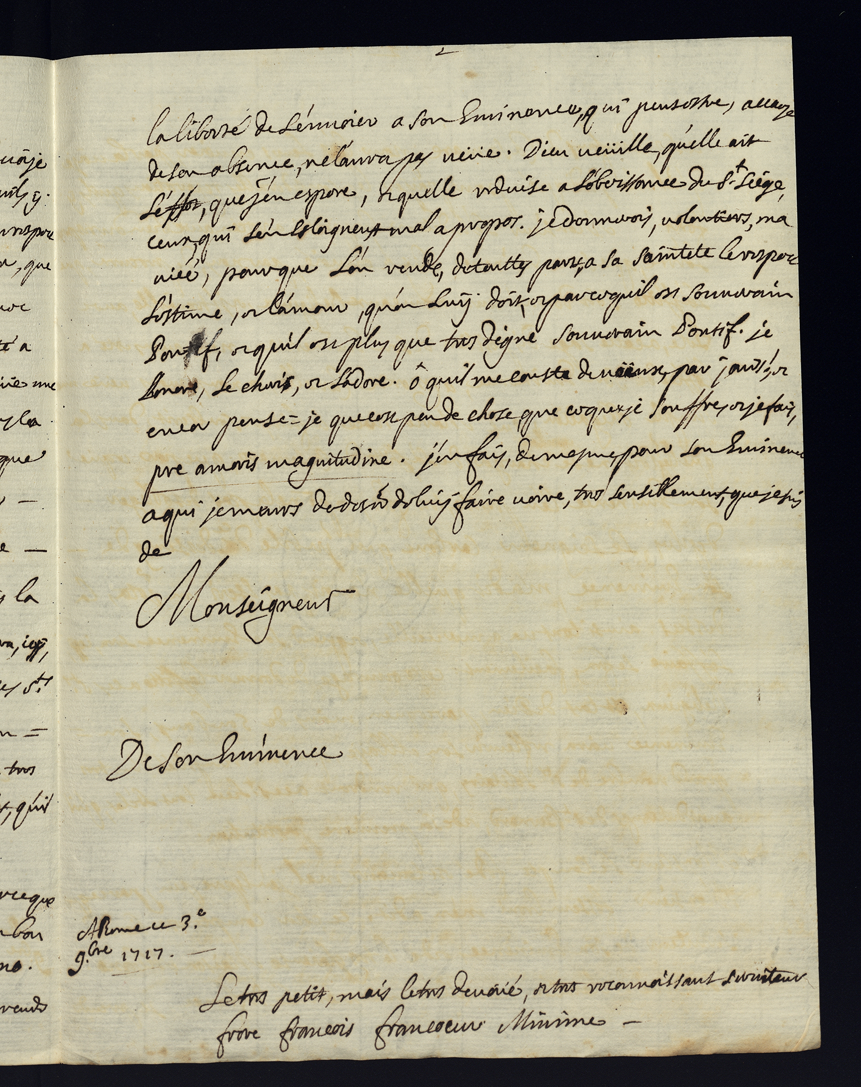 la liberté de L'énuoier a son Eminence, qui peutestre, acause
de son absence, ne L'aura pas veüe. Dieu veüille, qu'elle ait
L'effet, que j'en espere, et quelle reduise a L'obeissance du S.t Siége,
ceux, qui s'en Esloignent mal a propos. je donnerois, volontiers, ma
vie, pourque L'on rende, de touttes parts, a sa sainteté le respect
L'estime, et L'amour, qu'on Luÿ doit, et parcequ'il est souuerain
Pontif, et qu'il est plus que tres digne souuerain Pontif. je
L'onore, Le cheris, et L'adore. ô qu'il me couste de
encor pense = je que c'est peu de chose, que ce que je souffre, et je fais,
pre amoris magnitudine. j'en fais, de mesme, pour son Eminence
a qui je meurs de desir de luÿ faire voire, tres sensiblement, que je suis
de
Monseigneur
De son Eminence
A Rome ce 3.e
9.bre 1717. —
Le tres petit, mais le tres deuoüé, et tres reconnoissant seruiteur
frere françois francoeur Minime —
uoc
té a
que
s la
tres
t, qu'il
rceque
n bon
rendre